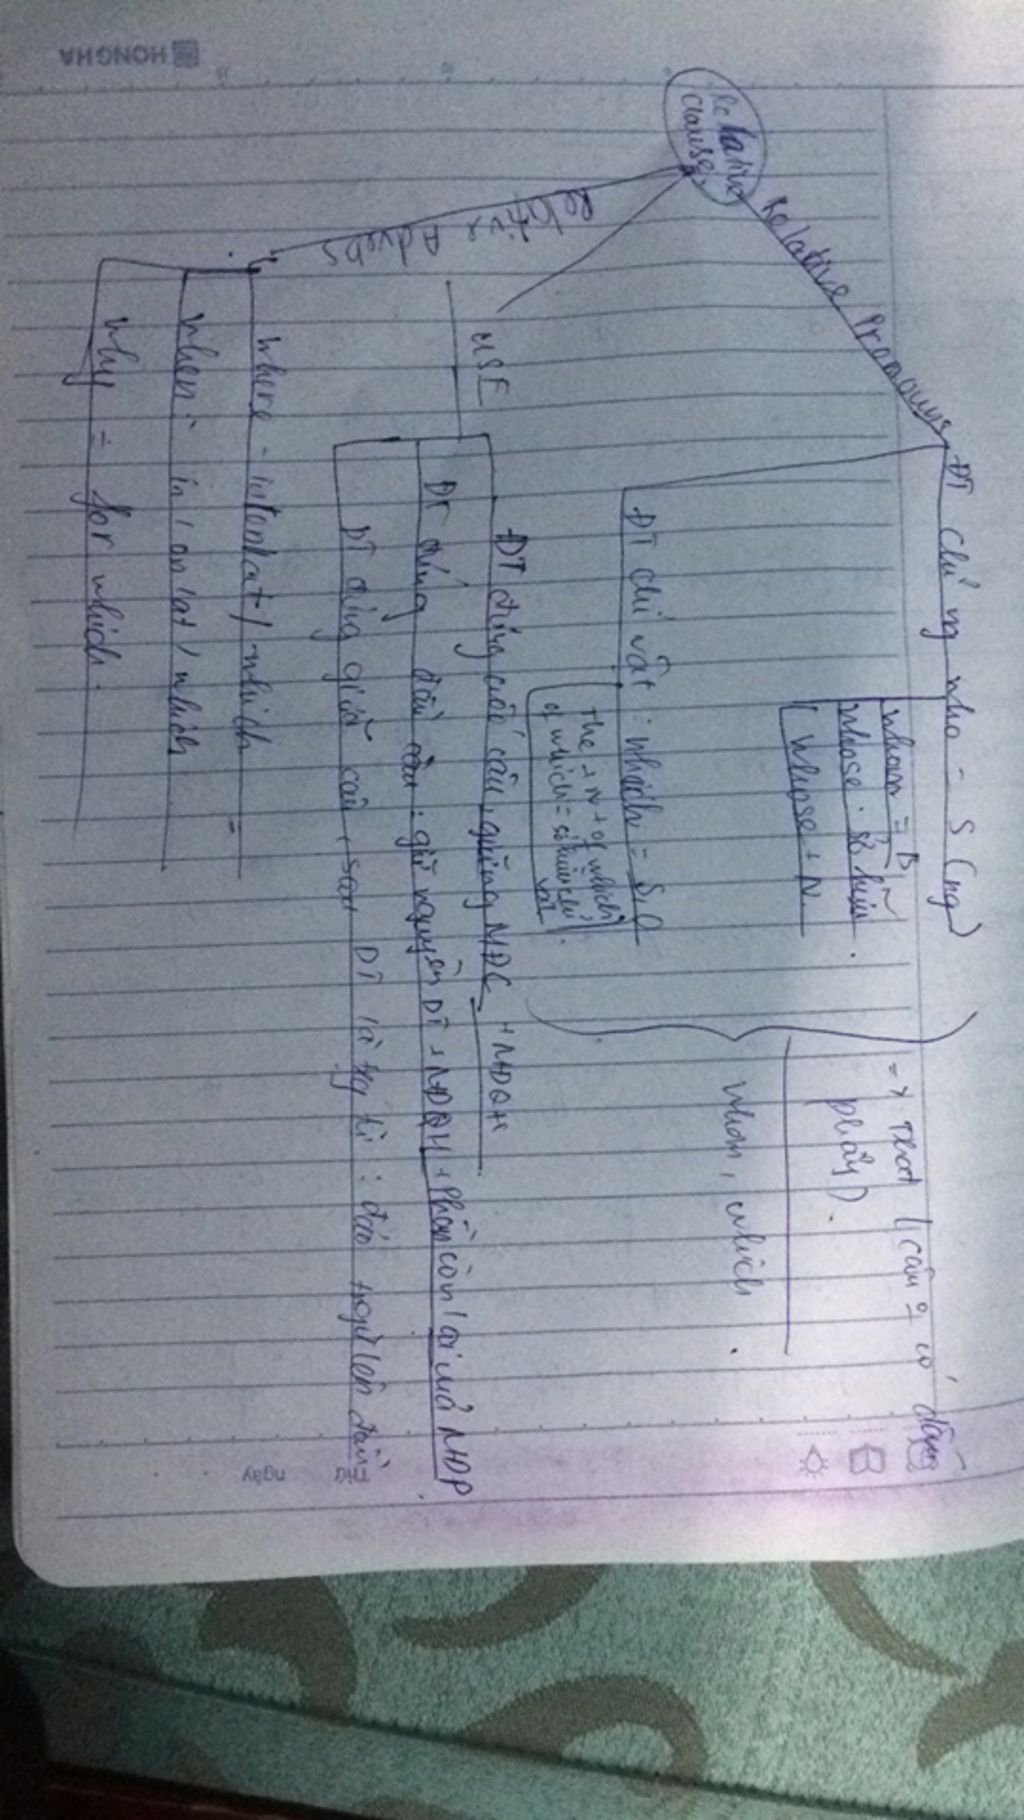 HONGHA
Relative
clause
Relative Pronouns
ĐT chỉ ng who - S (ng)
whom = 
whose: sở hữu.
whose + N
=> That (câu có dấu
phẩy).
whom, which.
ĐT chỉ vật: which = S,O
the + N + of which
of which = sở hữu chỉ
vật.
USE
ĐT đứng cuối câu, giống MĐC + MĐQH
đứng đầu câu: giữ nguyên DT + MĐQH + Phần còn lại MĐP
DT đứng giữa câu, sau DT là : đảo lên đầu
Relative Adverbs
where - in/on/at/which
when: in/on/at/which
why = for which.
Thứ
ngày